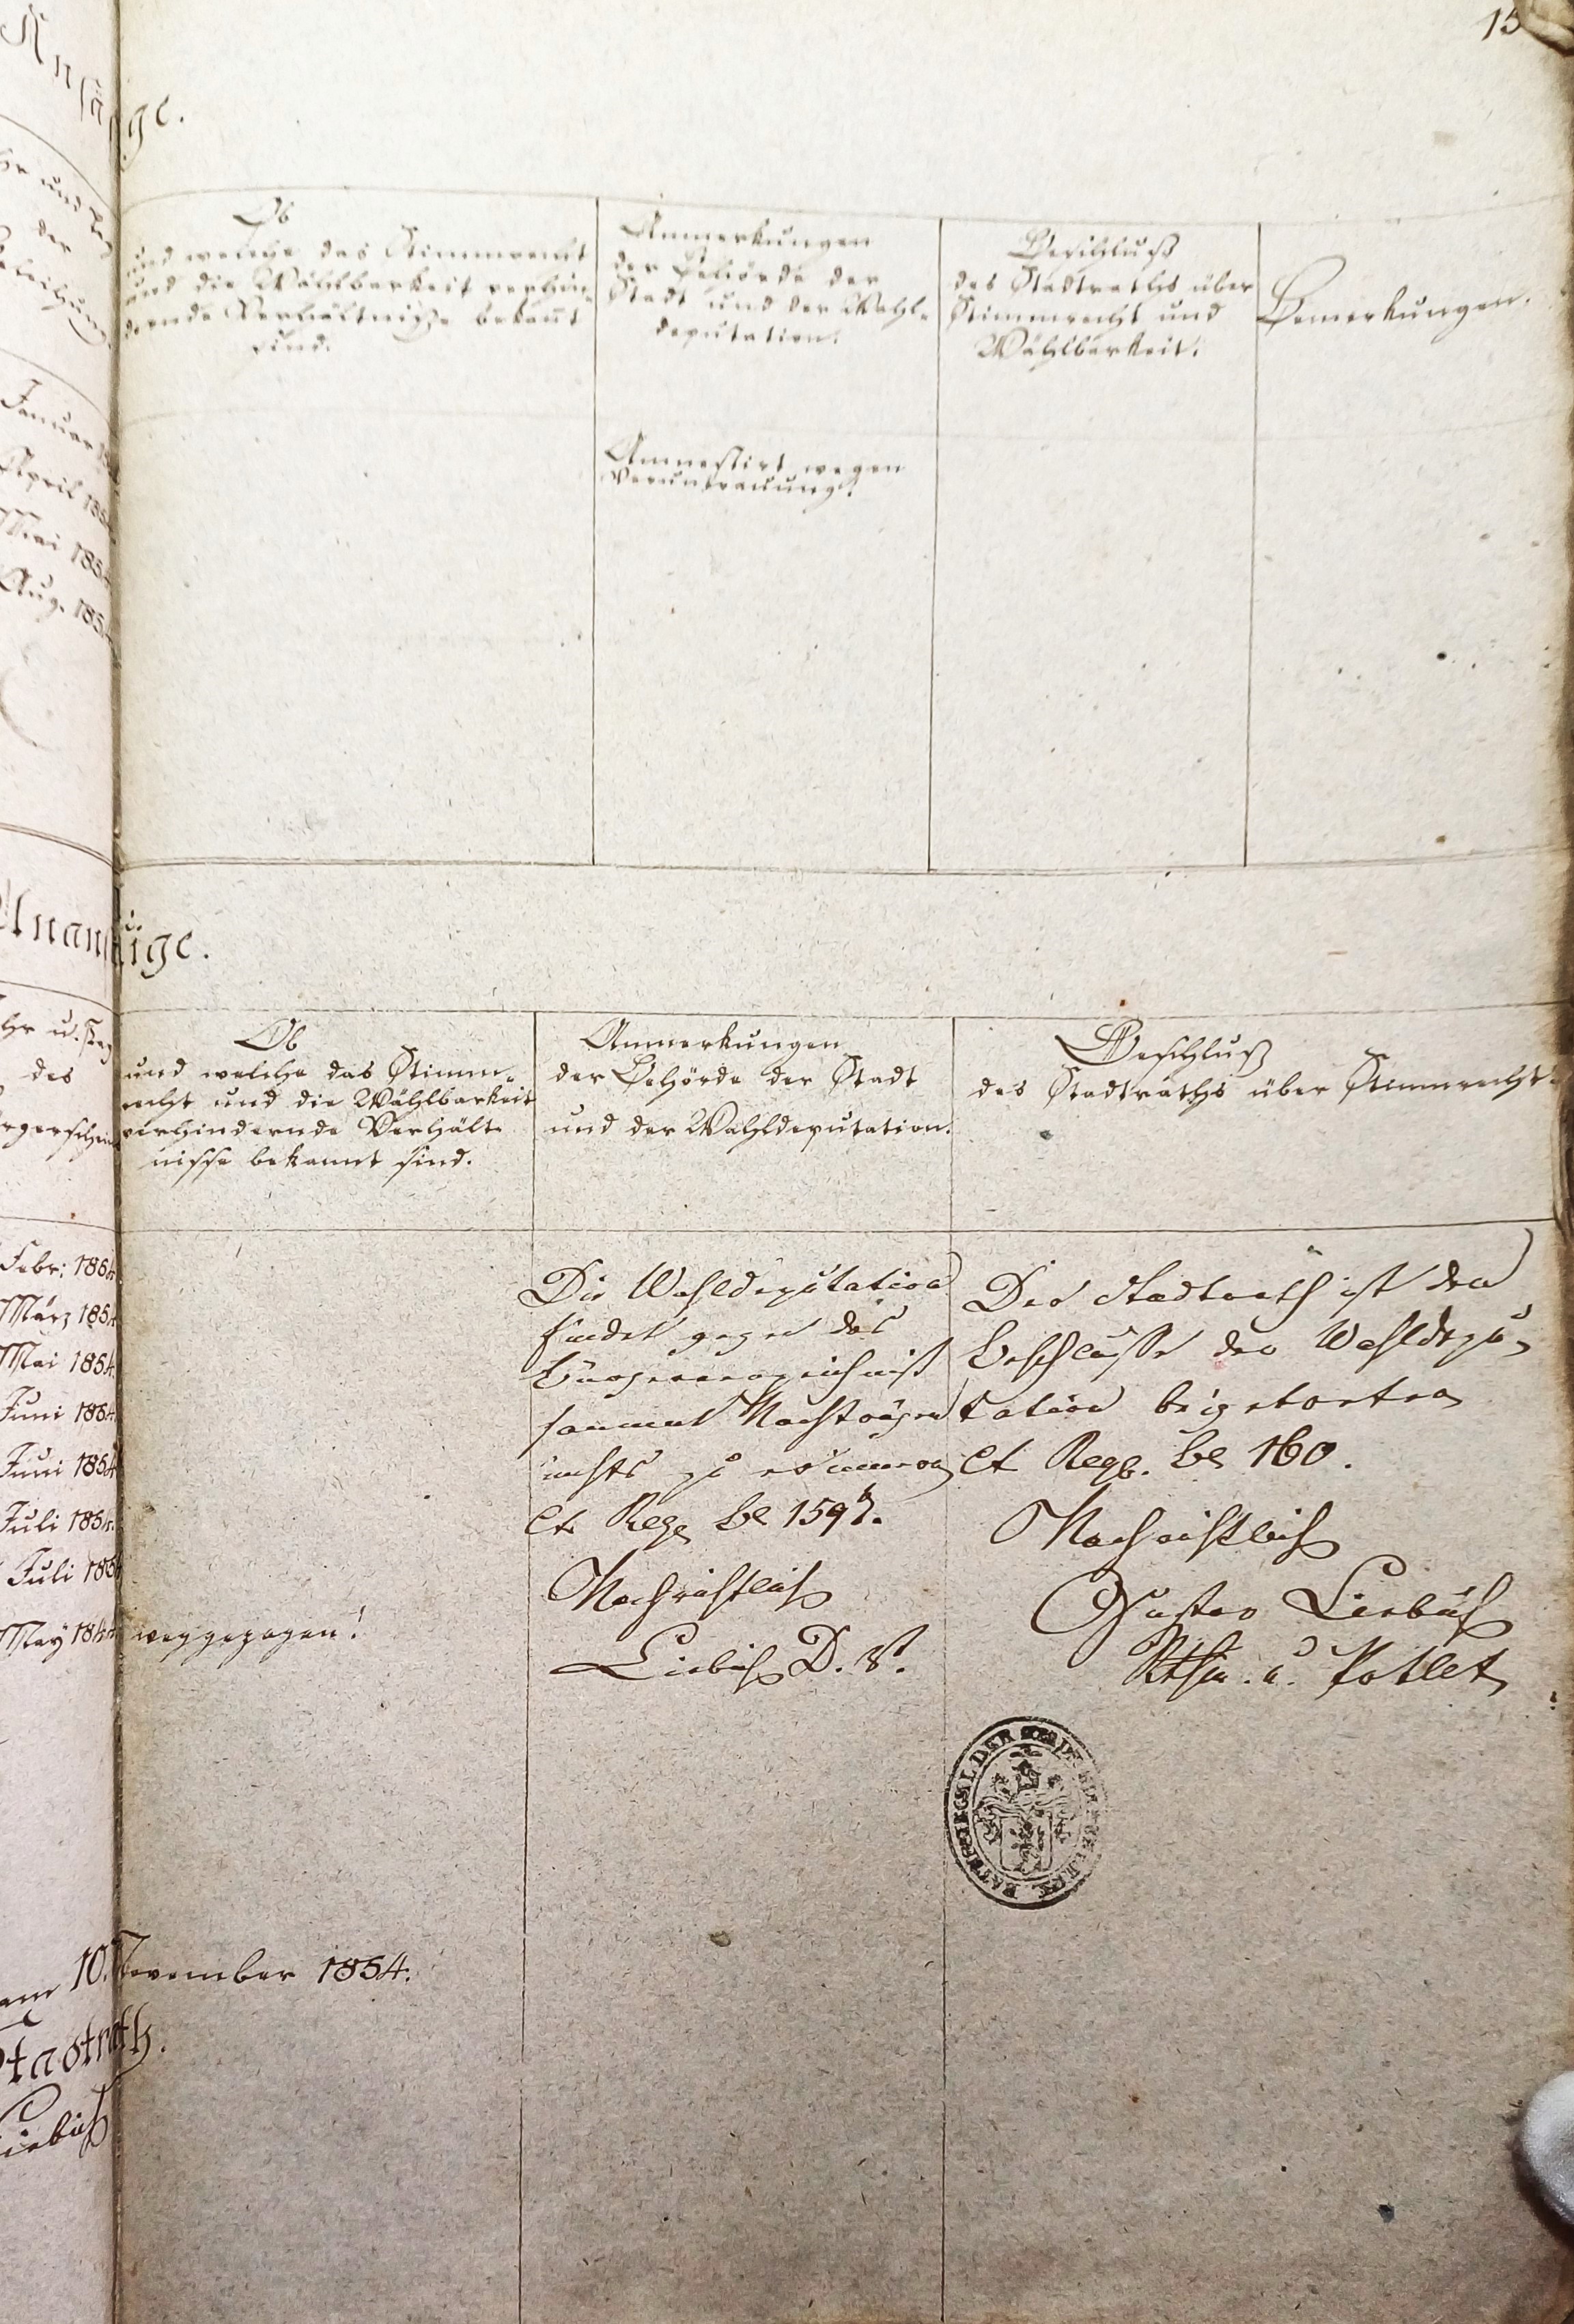 15
Ansäßige.
Ob
und welche das Stimmrecht
und die Wählbarkeit verhin-
dernde Verhältniße bekannt
sind.
Anmerkungen
der Behörde der
Stadt und der Wahl-
deputation.
Beschluß
des Stadtraths über
Stimmrecht und
Wählbarkeit.
Bemerkungen.
Januar
April 185
Mai 185
Aug. 185
Amnestirt wegen
Veruntrauung.
Unansäßige.
Ob
und welche das Stimm-
recht und die Wählbarkeit
verhindernde Verhält-
nisse bekannt sind.
Anmerkungen
der Behörde der Stadt
und der Wahldeputation.
Beschluß
des Stadtraths über Stimmrecht
Febr: 1854
März 1854
Mai 1854.
Juni 1854.
Juni 1854
Juli 1854.
Juli 1854
May 184 weggezogen!
Die Wahldeputation
findet gegen das
Bürgerverzeichniß
sammt Nachträgen
nichts zu erinnern
Ct. Regg. Bl 159b.
Nachrichtlich
Liebisch D. V.
Der Stadtrath ist dem
Beschlusse der Wahldepu-
tation beigetreten
Ct. Regg. Bl 160.
Nachrichtlich
Gustav Liebisch
am 10. November 1854.
Stadtrath.
Liebisch